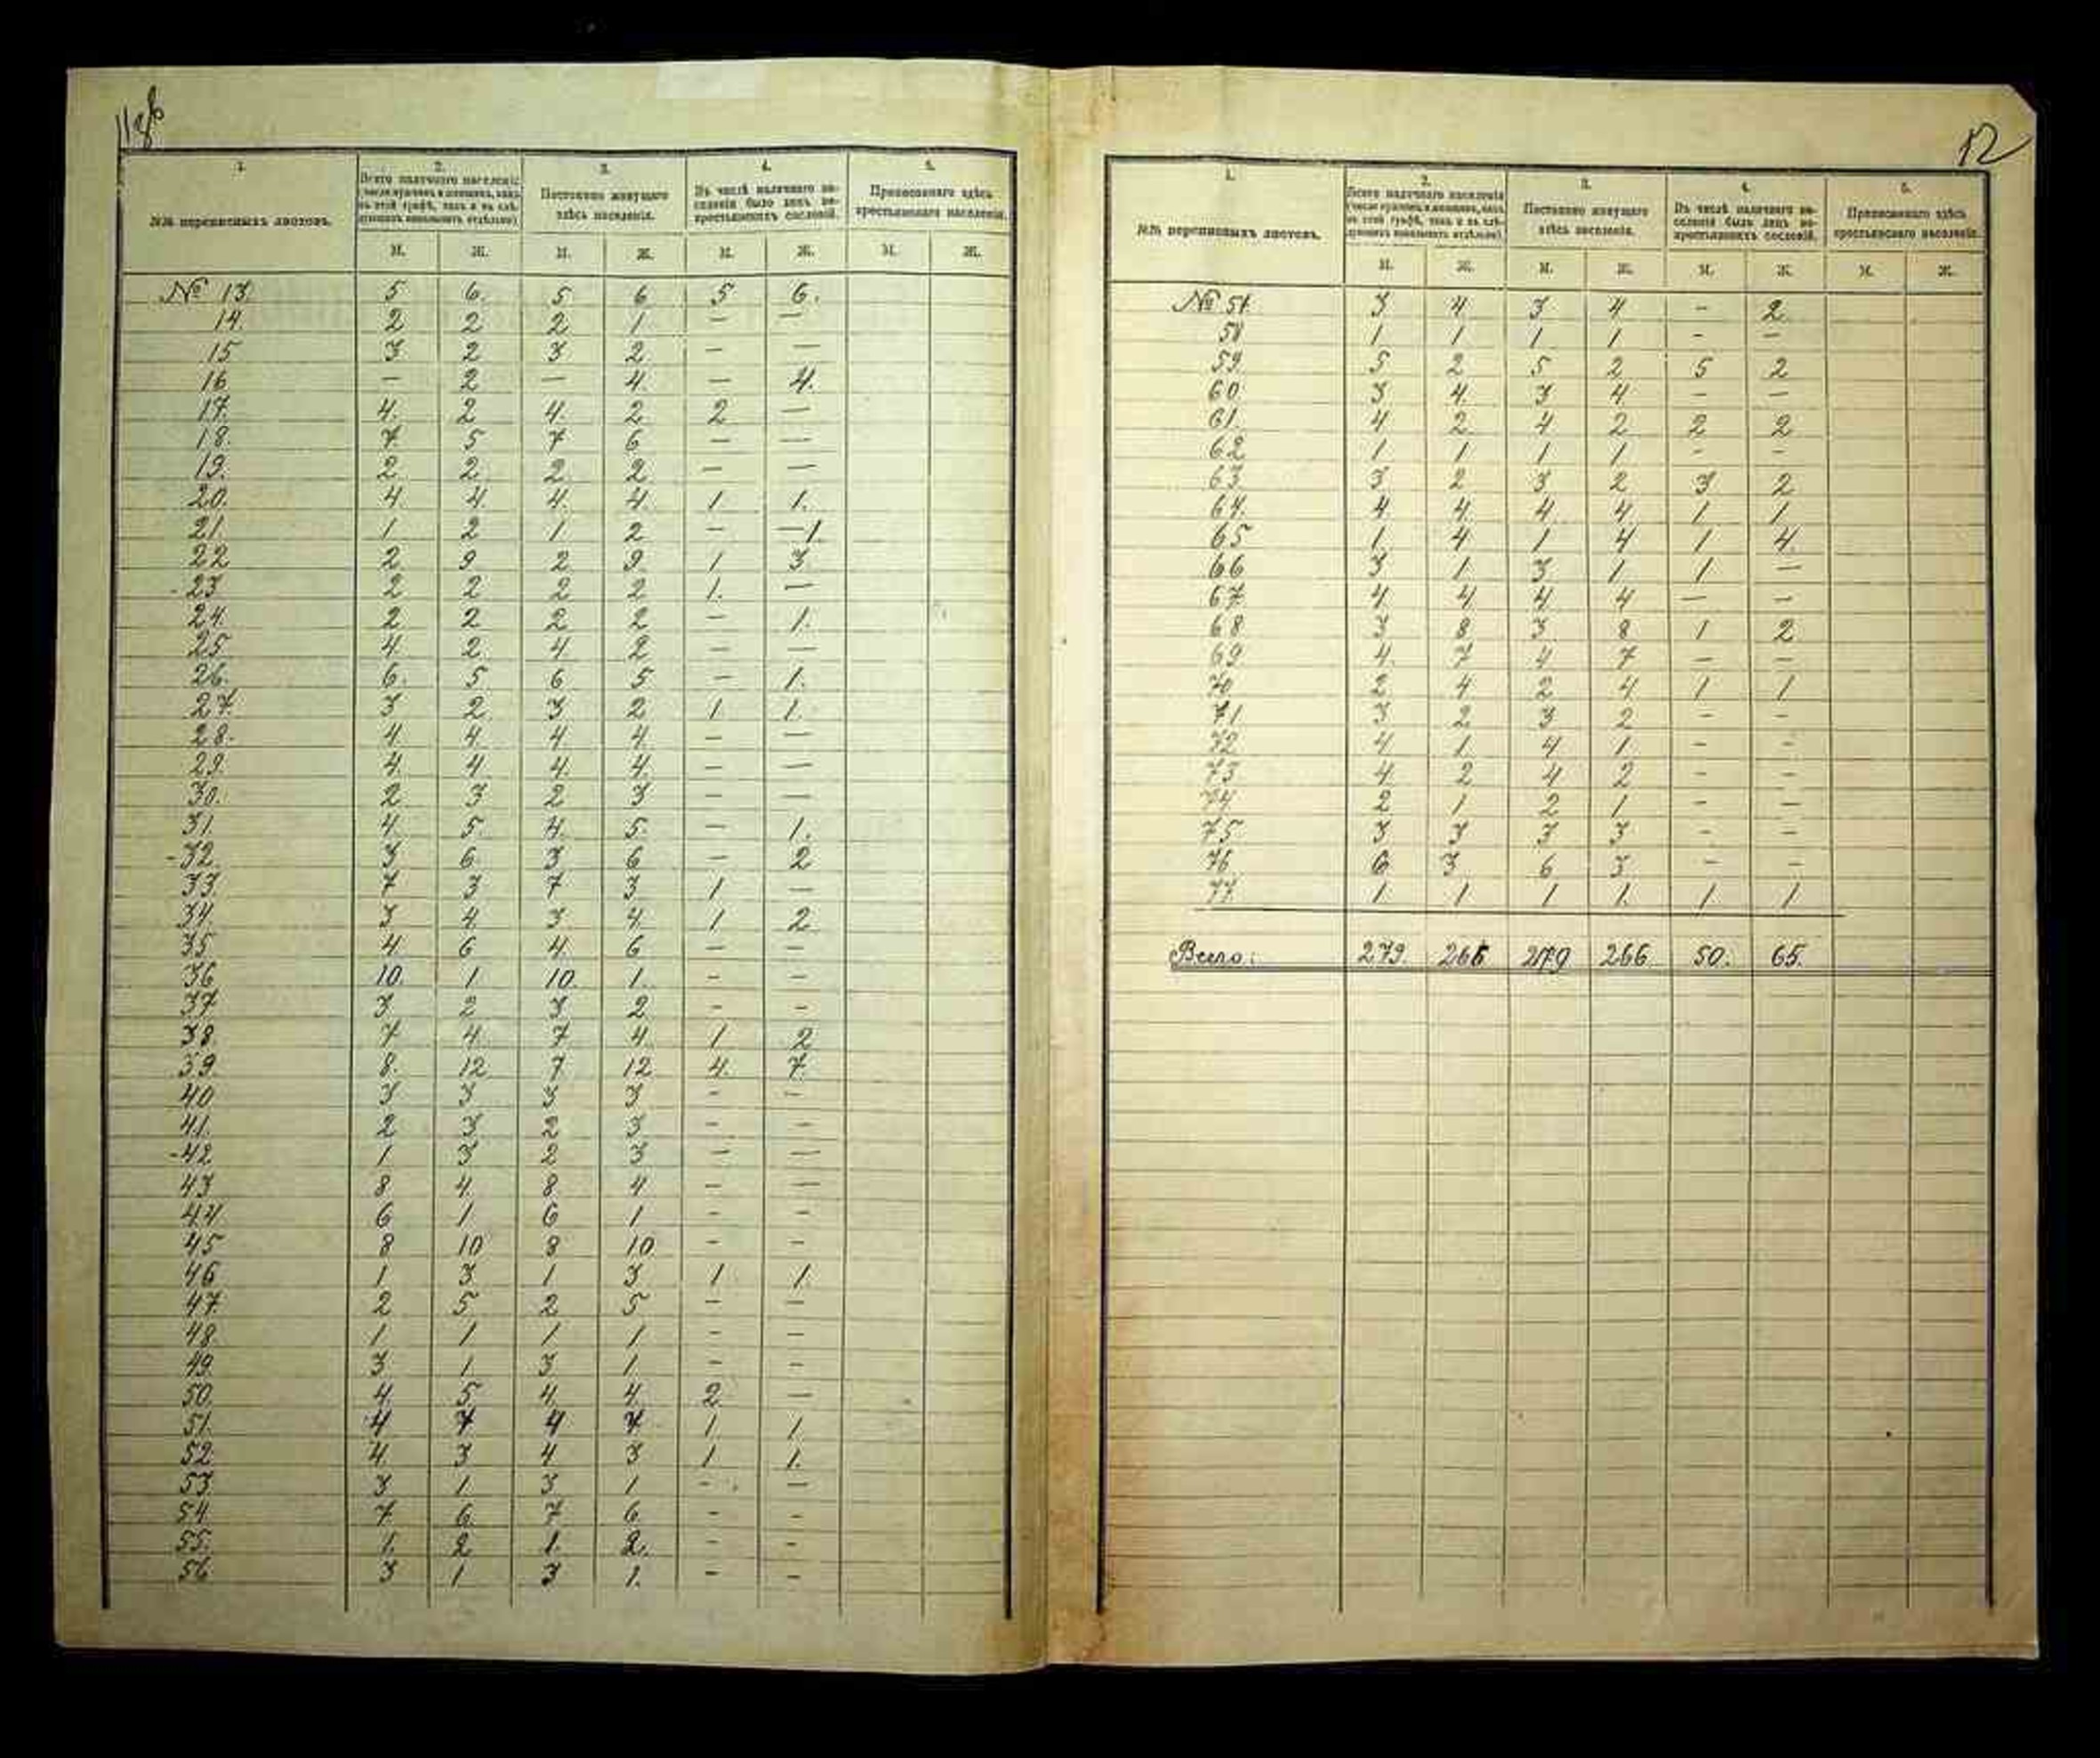 12
1. 2. 3. 4. 5.
№№ переписныхъ листовъ.
Всего наличнаго населенія (число мужчинъ и женщинъ, какъ въ этой графѣ, такъ и въ слѣдующихъ показывать отдѣльно).
Постоянно живущаго здѣсь населенія.
Въ числѣ наличнаго населенія было лицъ некрестьянскихъ сословій.
Приписаннаго здѣсь крестьянскаго населенія.
М. Ж. М. Ж. М. Ж. М. Ж.
№ 13. 5 6. 5 6 5 6.
14. 2 2 2 1 — —
15 3 2 3 2 — —
16 — 2 — 4. — 4.
17. 4. 2 4. 2 2 —
18. 7. 5 7 6 — —
19. 2 2 2 2 — —
20. 4 4. 4. 4. 1 1.
21. 1 2 1. 2 — —1
22 2 9 2 9. 1 3
-23 2 2 2 2 1. —
24. 2 2 2 2 — 1.
25 4. 2 4 2 — —
26. 6. 5 6 5 — 1.
27. 3 2 3 2 1 1.
28. 4 4. 4. 4. — —
29. 4. 4 4. 4. — —
30. 2 3 2 3 — —
31. 4. 5 4. 5. — 1.
-32 3 6 3 6 — 2
33 7 3 7 3 1 —
34. 3 4. 3 4. 1 2
35 4. 6 4. 6 — —
36 10. 1 10. 1. - -
37 3 2 3 2 - -
38 7 4. 7 4. 1 2
39. 8. 12 7 12 4. 7.
40 3 3 3 3 - -
41. 2 3 2 3 - -
-42 1 3 2 3 — —
43 8 4. 8 4 - —
44 6 1 6 1 - -
45 8 10 8 10 - -
46 1 3 1 3 1 1.
47. 2 5 2 5 - -
48 1 1 1 1 - -
49. 3 1 3 1. - -
50. 4. 5 4. 4. 2 —
51. 4 7 4 7. 1 1.
52 4. 3 4 3 1 1.
53 3 1. 3 1 - —
54 7. 6. 7 6 - -
55. 1. 2 1. 2. - -
56 3 1 3 1. - -
1. 2. 3. 4. 5.
№№ переписныхъ листовъ.
Всего наличнаго населенія (число мужчинъ и женщинъ, какъ въ этой графѣ, такъ и въ слѣдующихъ показывать отдѣльно).
Постоянно живущаго здѣсь населенія.
Въ числѣ наличнаго населенія было лицъ некрестьянскихъ сословій.
Приписаннаго здѣсь крестьянскаго населенія.
М. Ж. М. Ж. М. Ж. М. Ж.
№ 57. 3 4 3 4 - 2
58 1 1 1 1 - —
59. 5 2 5 2 5 2
60 3 4. 3 4. - —
61. 4 2 4 2 2 2
62 1 1 1 1 - -
63. 3 2 3 2 3 2
64. 4 4. 4 4 1 1
65 1 4 1 4 1 4.
66 3 1 3 1 1 —
67. 4. 4 4. 4 — -
68 3 8 3 8 1 2
69. 4. 7 4 7 — —
70 2 4 2 4. 1 1
71 3 2 3 2 - -
72 4 1 4 1. - -
73 4. 2 4 2 - -
74 2 1 2 1 - —
75 3 3 3 3 - -
76 6 3 6 3 - -
77. 1. 1 1 1. 1 1
Всего: 279. 266 279 266 50. 65.